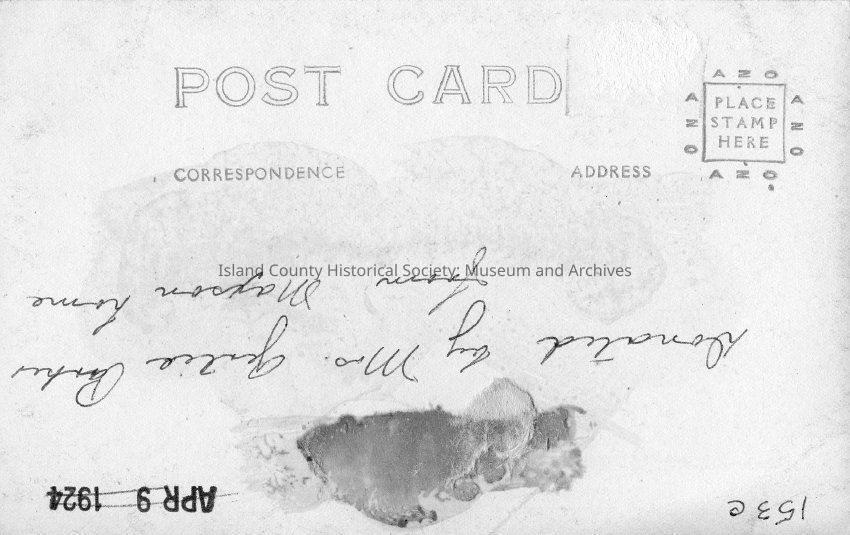 POST CARD
AZO
AZO
PLACE
STAMP
HERE
AZO
AZO
CORRESPONDENCE
ADDRESS
Island County Historical Society: Museum and Archives
153 c
APR 9 1924
Donated by Mrs.
from Mayson home